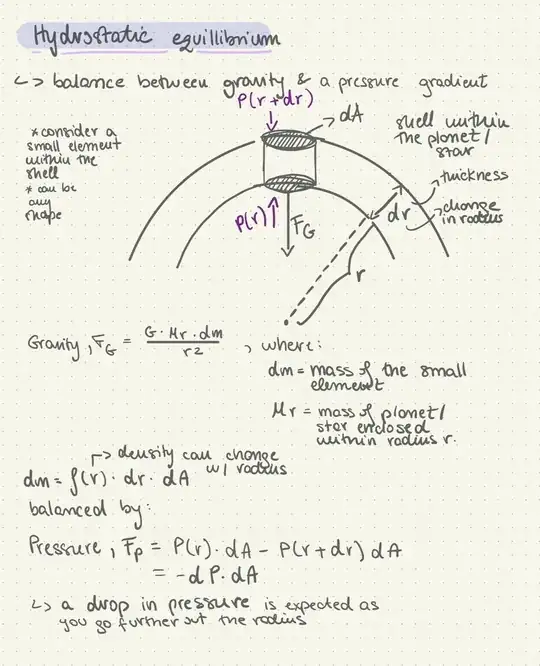 Hydrostatic equillibrium
↳ balance between gravity & a pressure gradient
P(r+dr)
dA
* consider a
small element
within the
shell
* can be
any
shape
shell within
the planet/
star
thickness
dr
change
in radius
P(r)
F_G
r
Gravity, F_G = G · Mr · dm / r² , where:
dm = mass of the small
element
Mr = mass of planet/
star enclosed
within radius r.
↱ density can change
w/ radius
dm = ρ(r) · dr · dA
balanced by:
Pressure, F_p = P(r) · dA - P(r+dr) dA
= -dP · dA
↳ a drop in pressure is expected as
you go further out the radius